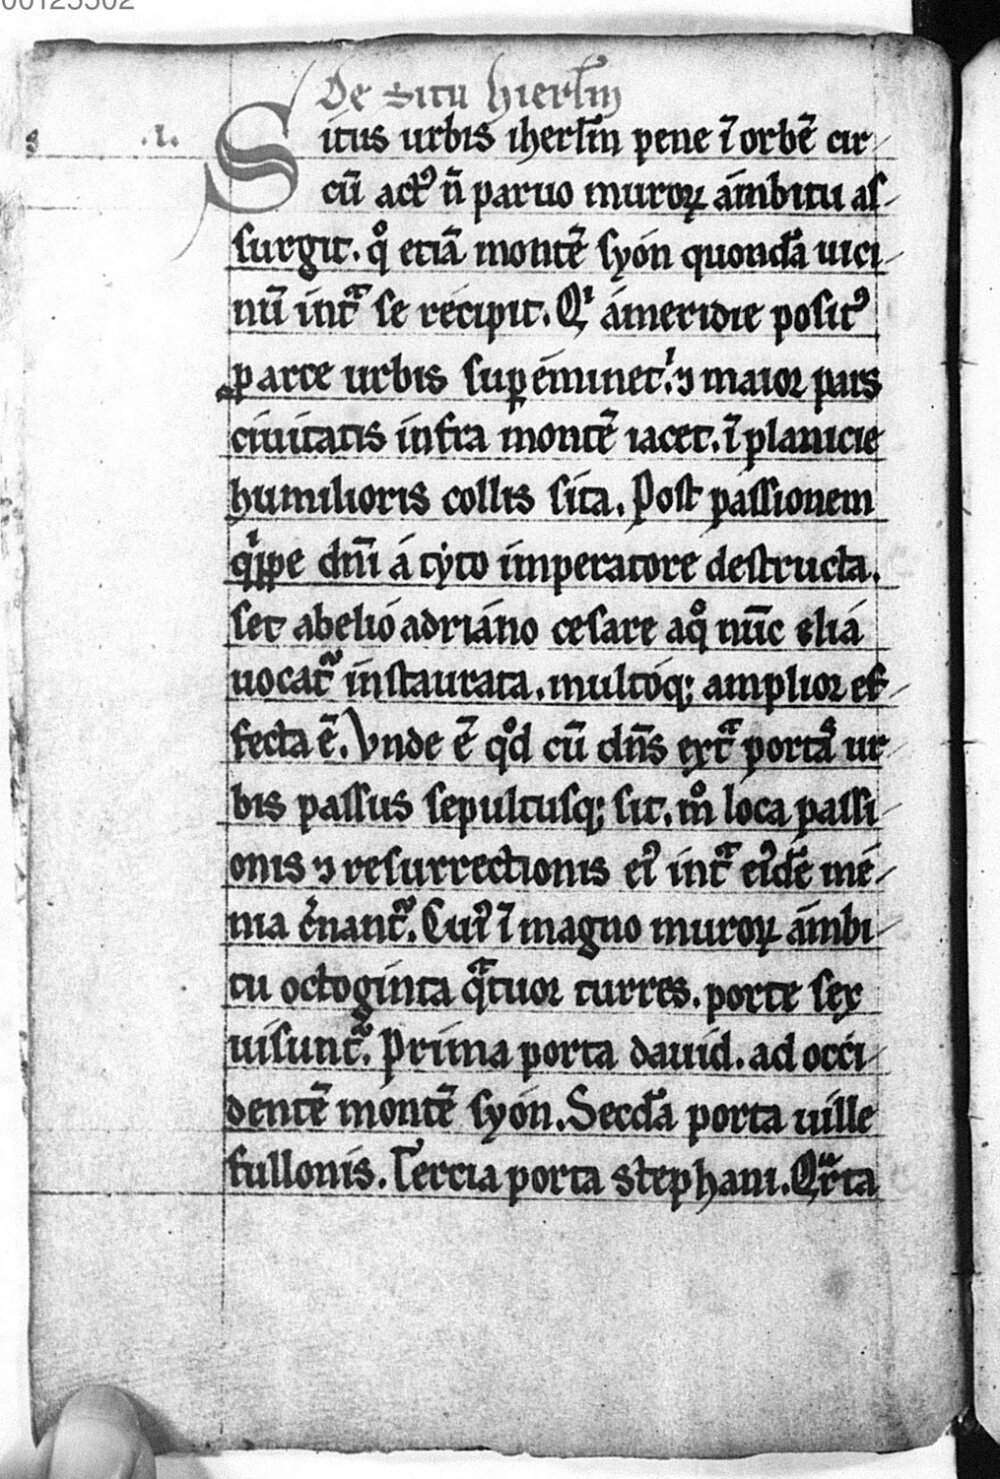 00125502
De situ hierl̅m
.i. Situs urbis iherl̅m pene ī orbē cir
cū actꝰ n̄ paruo muroꝝ ambitu aſ
ſurgit. qͦ etiā montē ſyon quondā uici
nū intᷓ ſe recipit. Qͥ a meridie poſitꝰ
parte urbis suꝑeminet. ⁊ maior pars
ciuitatis infra montē iacet. ī planicie
humilioris collis ſita. Poſt paſſionem
qͥppe dn̄i a tyto imperatore deſtructa.
ſet ab elio adriano ceſare a qͦ nūc elia
uocatᷓ inſtaurata. multoq; amplior ef
fecta ē. Vnde ē qͦd cū dn̄s extᷓ portā ur
bis paſſus ſepultuſq; ſit. mͦ loca paſſi
onis ⁊ reſurrectionis eiꝰ intᷓ eiꝰdē me
nia c̓nantᷓ. Cuiꝰ ī magno muroꝝ ambi
tu octoginta qᷓtuor turres. porte ſex
uiſuntᷓ. Prima porta dauid. ad occi
dentē montē ſyon. Secd̄a porta uille
fullonis. Tercia porta stephani. Qᷓrta